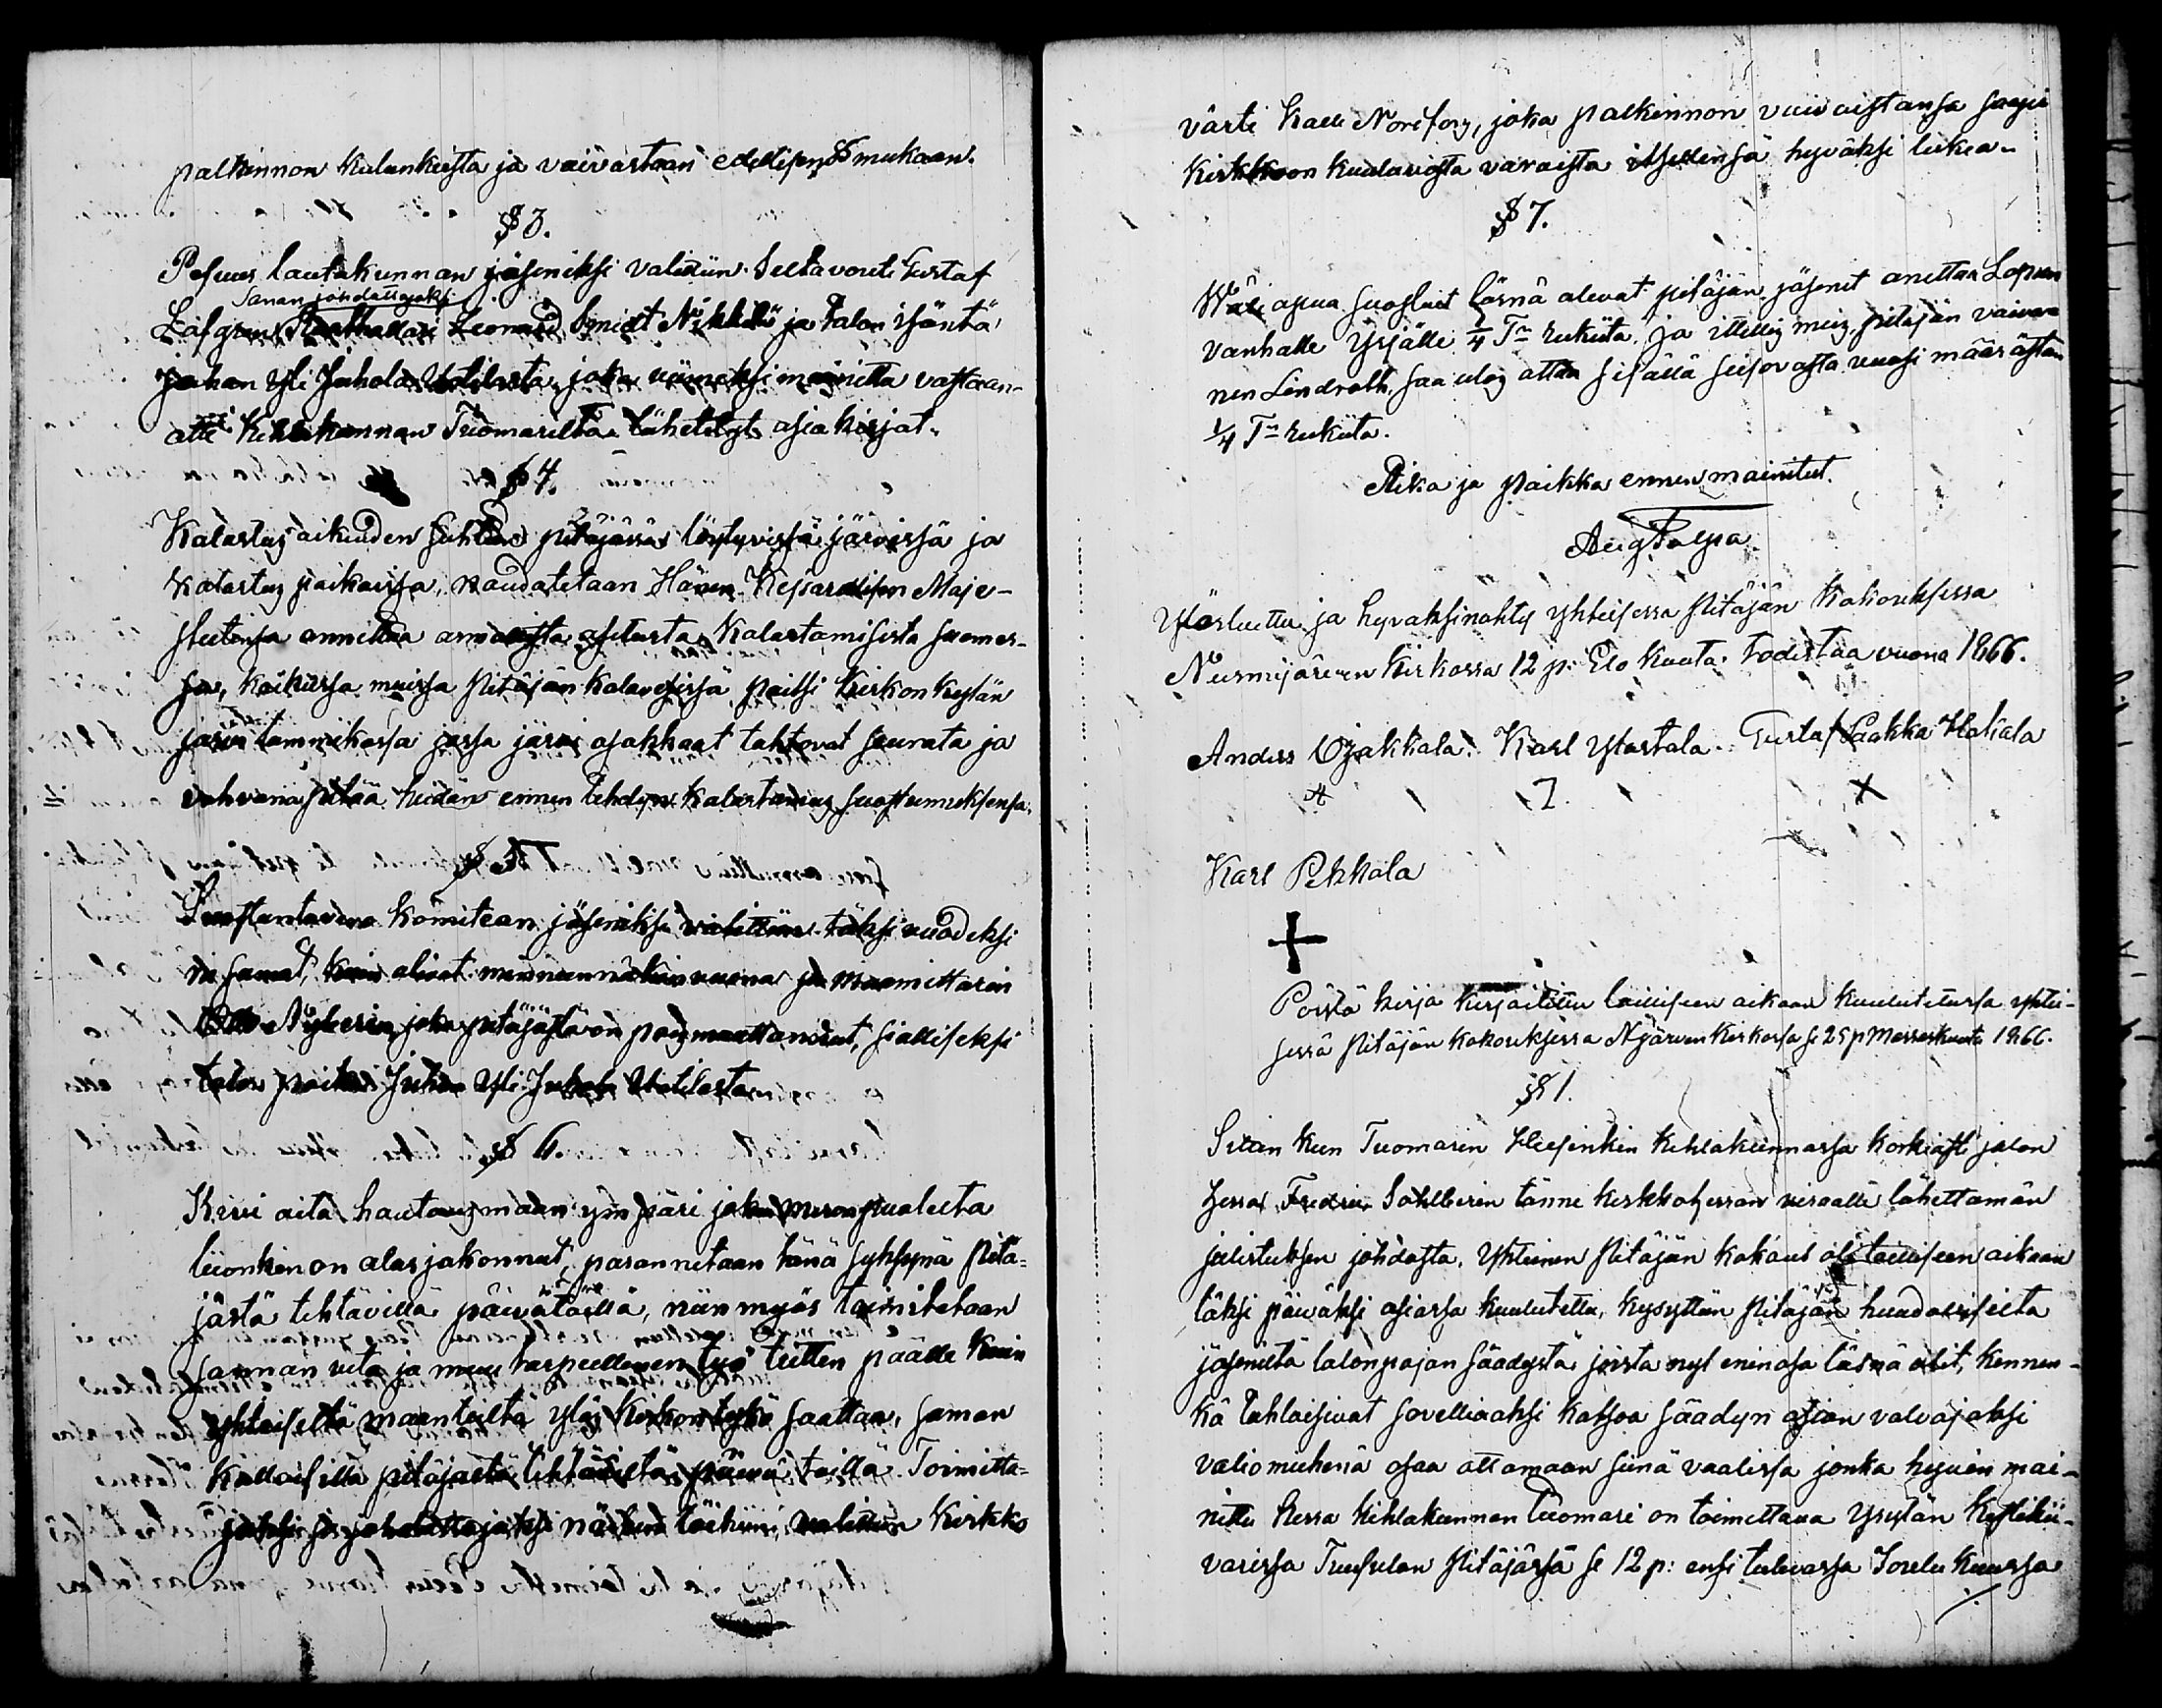 palkinnon kulunkista ja vaivastaan edellisen § mukaan.
§ 3.
Pesuus lautakunnan jäseniksi valittiin Seltavouti Gustaf
Sanan johdattajaksi
Löfgren Leonard Smidt Nikkilä ja Talon isäntä
Johan Yli Juhola Uotilasta, joka viimeksi mainittu vastaan-
otti Kihlakunnan Tuomarilta lähetetyt asiakirjat.
§ 4.
Kalastus aikuuden suhteen pitäjässä löytyvissä järvissä ja
Kalastus paikoissa, noudatetaan Hänen Keisarillisen Maje-
steetinsa annettua armollista asetusta Kalastamisesta Suomes-
sa, kaikissa muissa Pitäjän kalavesissä paitsi Kirkon Kylän
järvi tammikossa jossa järvi osakkaat tahtovat seurata ja
vahvana pitää heidän ennen tehdyn kalastamus suostumuksensa.
§ 5
Suostuntavero komitean jäseniksi valittiin täksi vuodeksi
ne samat, kuin olivat mennennäkin vuonna ja maamittarin
Nyberin joka pitäjästä on pois muuttanut, sialliseksi
talon poika Juhan Yli Juhola Uotilasta
§ 6.
Kivi aita hautausmaan ympäri joka muron puolelta
luonkin on alas jakonnut, parannetaan tänä syksynä Pitä-
jästä tehtävillä päivätöillä, niin myös toimitetaan
sannan veto ja muu tarpeellinen työ teitten päälle kuin
yhteiseltä maantieltä ylös Kirkon tykö saattaa, saman
kallaisilla pitäjästä tehtäviltä päivä töillä. Toimitta-
jaksi ja johdattajaksi näihin töihin valittiin Kirkko
värti Kalle Norsfors, joka palkinnon vaivastansa saapi
Kirkkoon kuuluvista varoista itsellensä hyväksi lukea.
§ 7.
Wäliapua suostuit läsnä olevat pitäjän jäsenet anettaa Lopun
vanhalle Yrjälle 1/4 Tn rukiita, ja itsellis mies pitäjän vaivai-
nen Lindroth, saa ulos ottaa sisällä seisovasta vuosi määrästän
1/4 Tn rukiita.
Aika ja paikka ennen mainitut.
Aug Palpa
Ylösluettu ja hyväksinähty yhteisessä Pitäjän Kokouksessa
Nurmijärven Kirkossa 12 p: Elo Kuuta. todistaa vuonna 1866.
Anders Ojakkala. Karl Ylastala. Gustaf Laakka Hakala
Karl Pekkala
Pöytä kirja kirjoitettu lailliseen aikaan kuulutetussa yhtei-
sessä Pitäjän kokouksessa Njärven Kirkossa se 25 p Marraskuuta 1866.
§ 1.
Sitten kun Tuomarin Helsinkin Kihlakunnassa korkiasti jalon
herra Fredrik Sohlberin tänne kirkkoherran viraalle lähettämän
julistuksen johdosta, Yhteinen Pitäjän kokous oli lailliseen aikaan
täksi päiväksi asiassa kuulutettu, kysyttiin Pitäjän huudollisilta
jäseniltä talonpojan säädystä joista nyt eninosa läsnä olit, kennen-
kä tahtoisivat sovelliaaksi katsoa säädyn asian valvojaksi
valiomiehenä osaa ottamaan siinä vaalissa jonka hyvin mai-
nittu herra kihlakunnan tuomari on toimittava Yrylän Kystikii-
varissa Tuusulan Pitäjässä se 12 p: ensi tulevassa Joulu kuussa